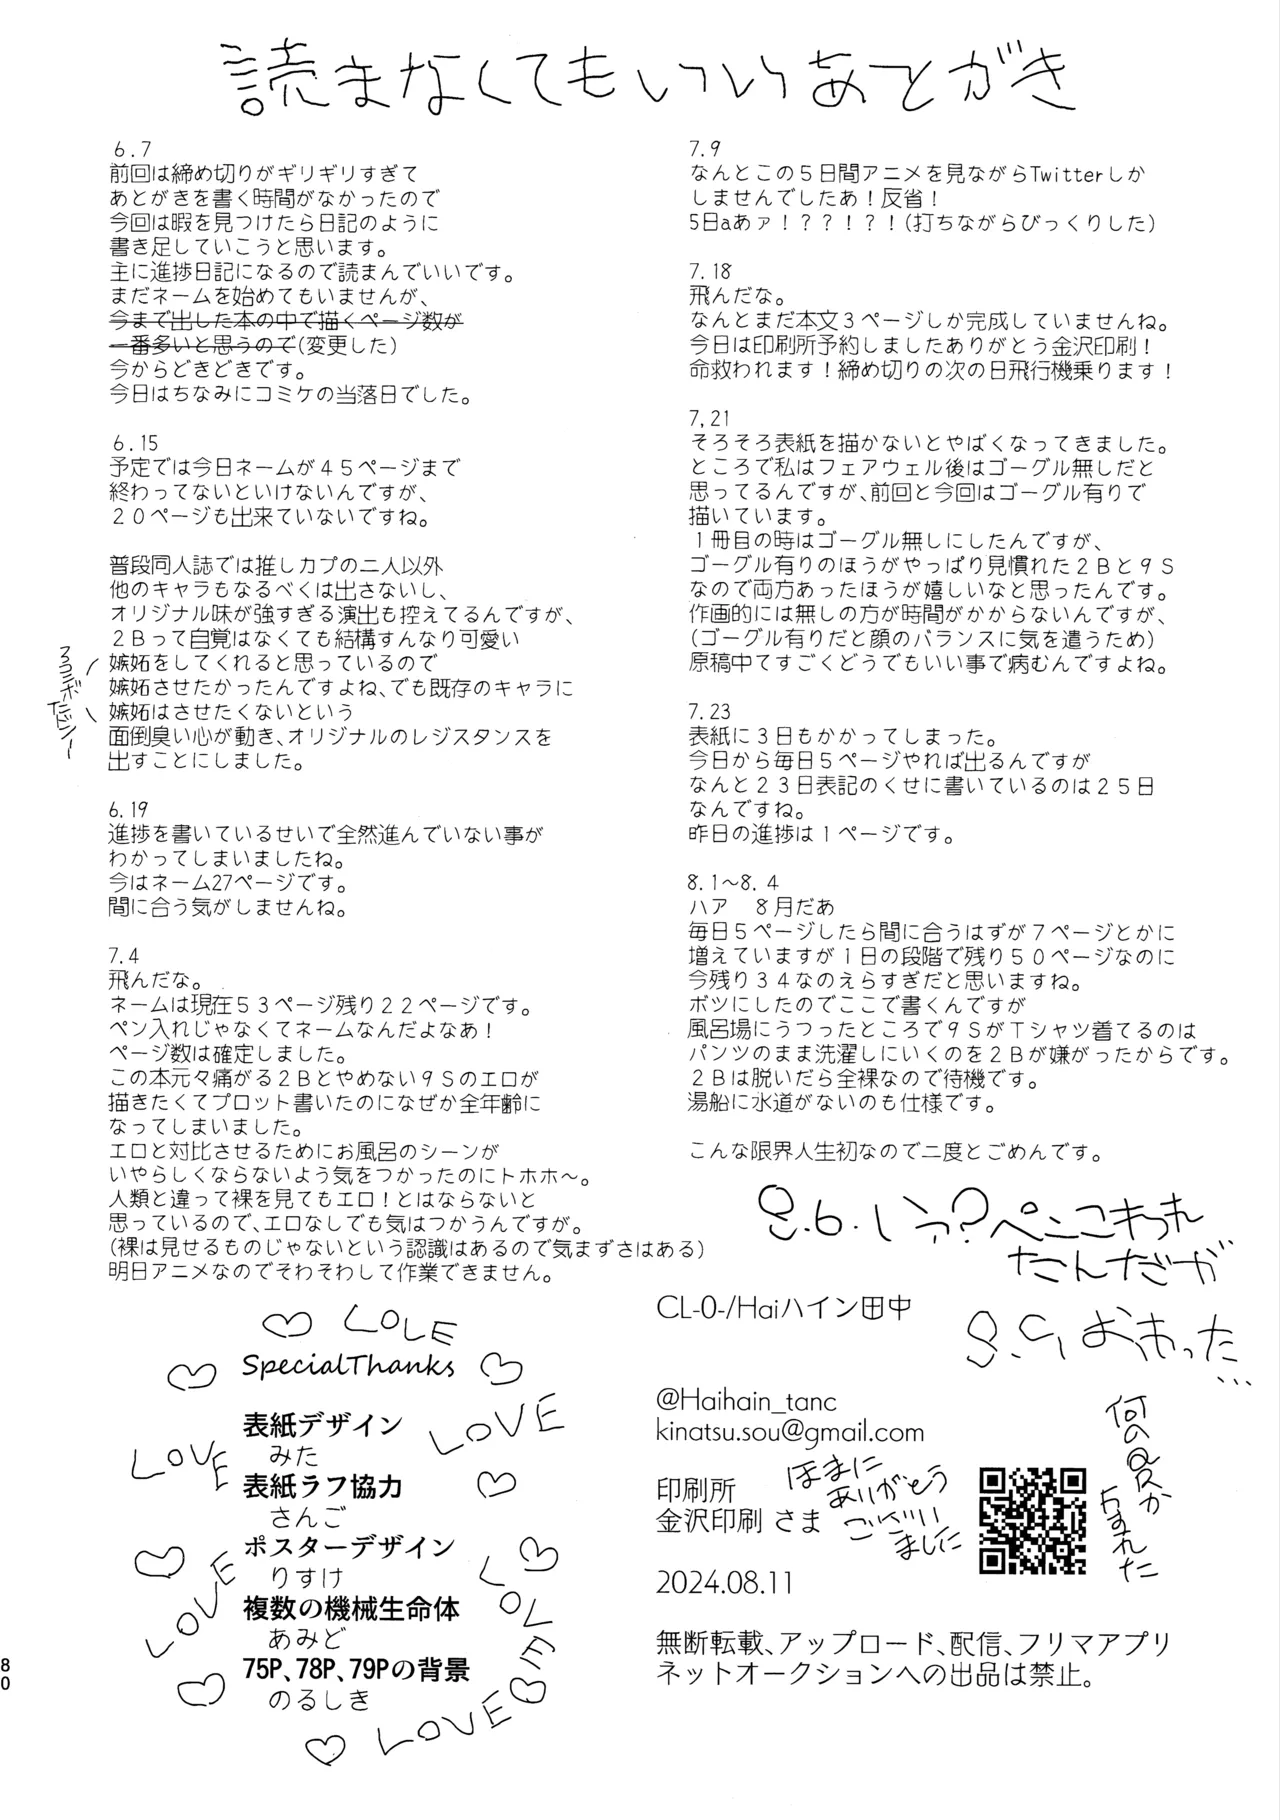 読まなくてもいいあとがき
6.7
前回は締め切りがギリギリすぎて
あとがきを書く時間がなかったので
今回は暇を見つけたら日記のように
書き足していこうと思います。
主に進捗日記になるので読まんでいいです。
まだネームを始めてもいませんが、
今まで出した本の中で描くページ数が
一番多いと思うので(変更した)
今からどきどきです。
今日はちなみにコミケの当落日でした。
6.15
予定では今日ネームが45ページまで
終わってないといけないんですが、
20ページも出来ていないですね。
普段同人誌では推しカプの二人以外
他のキャラもなるべくは出さないし、
オリジナル味が強すぎる演出も控えてるんですが、
2Bって自覚はなくても結構すんなり可愛い
嫉妬をしてくれると思っているので
嫉妬させたかったんですよね、でも既存のキャラに
嫉妬はさせたくないという
面倒臭い心が動き、オリジナルのレジスタンスを
出すことにしました。
6.19
進捗を書いているせいで全然進んでいない事が
わかってしまいましたね。
今はネーム27ページです。
間に合う気がしませんね。
7.4
飛んだな。
ネームは現在53ページ残り22ページです。
ペン入れじゃなくてネームなんだよなあ!
ページ数は確定しました。
この本元々痛がる2Bとやめない9Sのエロが
描きたくてプロット書いたのになぜか全年齢に
なってしまいました。
エロと対比させるためにお風呂のシーンが
いやらしくならないよう気をつかったのにトホホ～。
人類と違って裸を見てもエロ!とはならないと
思っているので、エロなしでも気はつかうんですが。
(裸は見せるものじゃないという認識はあるので気まずさはある)
明日アニメなのでそわそわして作業できません。
LOLE
SpecialThanks
LOVE
LOVE
表紙デザイン
みた
表紙ラフ協力
さんご
ポスターデザイン
りすけ
複数の機械生命体
あみど
75P、78P、79Pの背景
のるしき
LOVE
LOVE
LOVE
7.9
なんとこの5日間アニメを見ながらTwitterしか
しませんでしたあ!反省!
5日aあァ!??!?!(打ちながらびっくりした)
7.18
飛んだな。
なんとまだ本文3ページしか完成していませんね。
今日は印刷所予約しましたありがとう金沢印刷!
命救われます!締め切りの次の日飛行機乗ります!
7,21
そろそろ表紙を描かないとやばくなってきました。
ところで私はフェアウェル後はゴーグル無しだと
思ってるんですが、前回と今回はゴーグル有りで
描いています。
1冊目の時はゴーグル無しにしたんですが、
ゴーグル有りのほうがやっぱり見慣れた2Bと9S
なので両方あったほうが嬉しいなと思ったんです。
作画的には無しの方が時間がかからないんですが、
(ゴーグル有りだと顔のバランスに気を遣うため)
原稿中てすごくどうでもいい事で病むんですよね。
7.23
表紙に3日もかかってしまった。
今日から毎日5ページやれば出るんですが
なんと23日表記のくせに書いているのは25日
なんですね。
昨日の進捗は1ページです。
8.1～8.4
ハア 8月だあ
毎日5ページしたら間に合うはずが7ページとかに
増えていますが1日の段階で残り50ページなのに
今残り34なのえらすぎだと思いますね。
ボツにしたのでここで書くんですが
風呂場にうつったところで9SがTシャツ着てるのは
パンツのまま洗濯しにいくのを2Bが嫌がったからです。
2Bは脱いだら全裸なので待機です。
湯船に水道がないのも仕様です。
こんな限界人生初なので二度とごめんです。
ペンこわれ
たんだが
8.9 おわった…
CL-0-/Haiハイン田中
@Haihain_tanc
kinatsu.sou@gmail.com
印刷所
金沢印刷 さま
ほまに
ありがとう
ございい
ました
何のQRか
わすれた
2024.08.11
無断転載、アップロード、配信、フリマアプリ
ネットオークションへの出品は禁止。
80